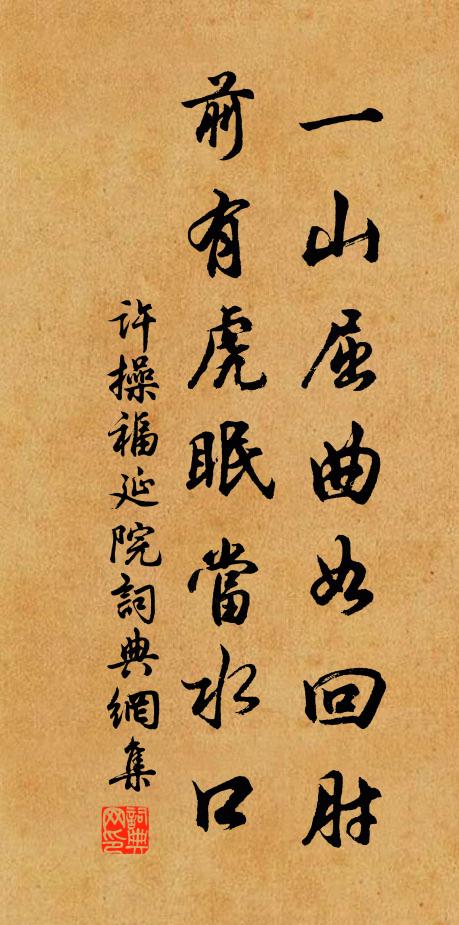 一山屈曲如回肘
前有虎眠當水口
许操福延院詞典網集
詞典网印